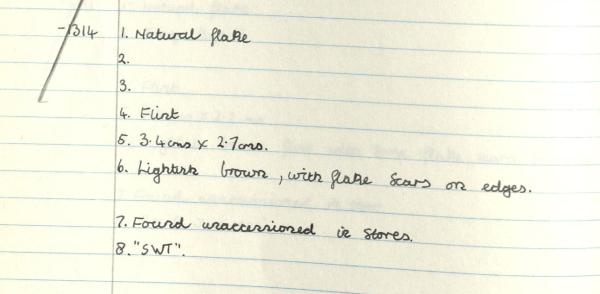 -1314 1. Natural flake
2.
3.
4. Flint
5. 3.4cms x 2.7cms.
6. Lightish brown, with flake scars on edges.
7. Found unaccessioned in stores.
8. "SWT".